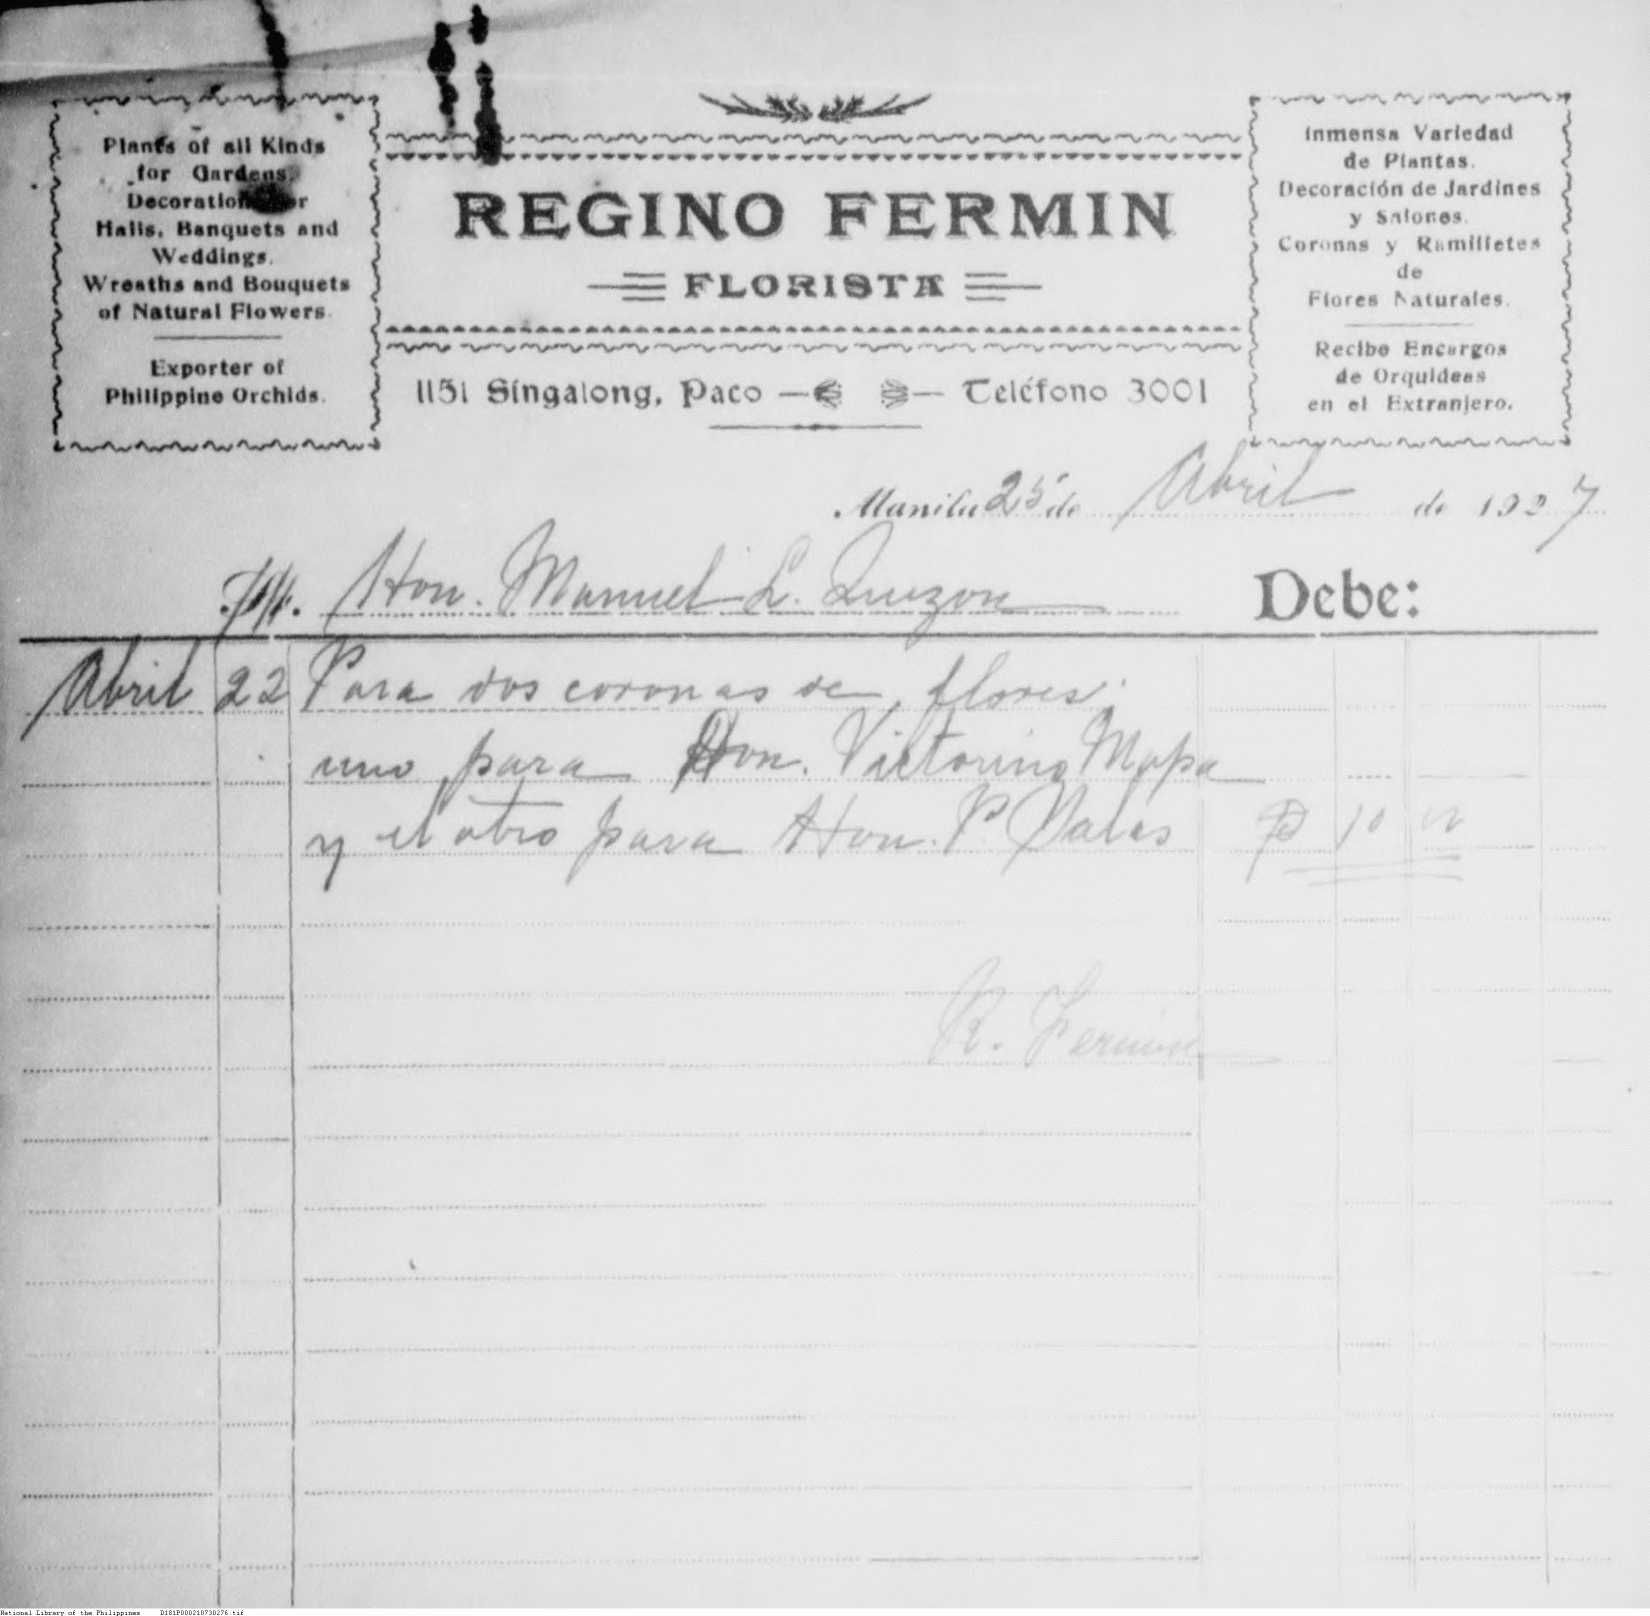 Plants of all Kinds
for Gardens.
Decorations for
Halls, Banquets and
Weddings.
Wreaths and Bouquets
of Natural Flowers.
Exporter of
Philippine Orchids.
REGINO FERMIN
FLORISTA
1151 Singalong, Paco Teléfono 3001
Inmensa Variedad
de Plantas.
Decoración de Jardines
y Salones.
Coronas y Ramilletes
de
Flores Naturales.
Recibe Encargos
de Orquideas
en el Extranjero.
Manila 25 de Abril de 1927
Hon. Manuel L. Quezon Debe:
Abril 22 Para dos coronas de flores
uno para Hon. Victorino Mapa
y el otro para Hon. P. Salas ₱ 10 00
R. Fermin
National Library of the Philippines D181P000210730276.tif